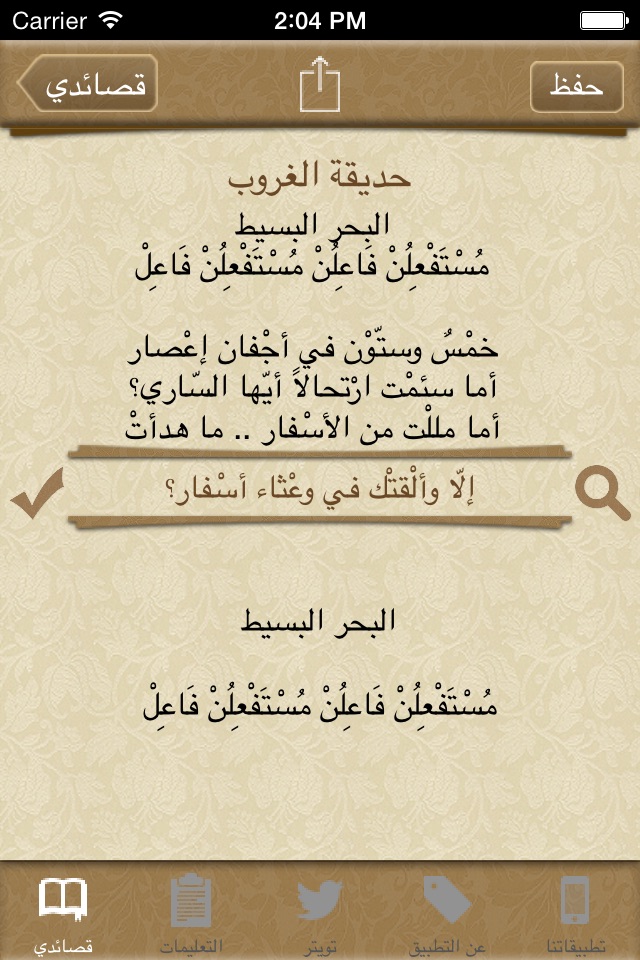 Carrier 2:04 PM
قصائدي حفظ
حديقة الغروب
البحر البسيط
مُسْتَفْعِلُنْ فَاعِلُنْ مُسْتَفْعِلُنْ فَاعِلْ
خمْسٌ وستّوْن في أجْفان إعْصار
أما سئمْت ارْتحالاً أيّها السّاري؟
أما مللْت من الأسْفار .. ما هدأتْ
إلّا وألْقتْك في وعْثاء أسْفار؟
البحر البسيط
مُسْتَفْعِلُنْ فَاعِلُنْ مُسْتَفْعِلُنْ فَاعِلْ
قصائدي التعليمات تويتر عن التطبيق تطبيقاتنا